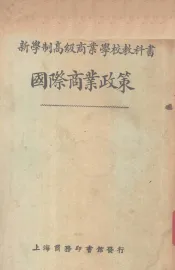 新學制高級商業學校教科書
國際商業政策
上海商務印書館發行